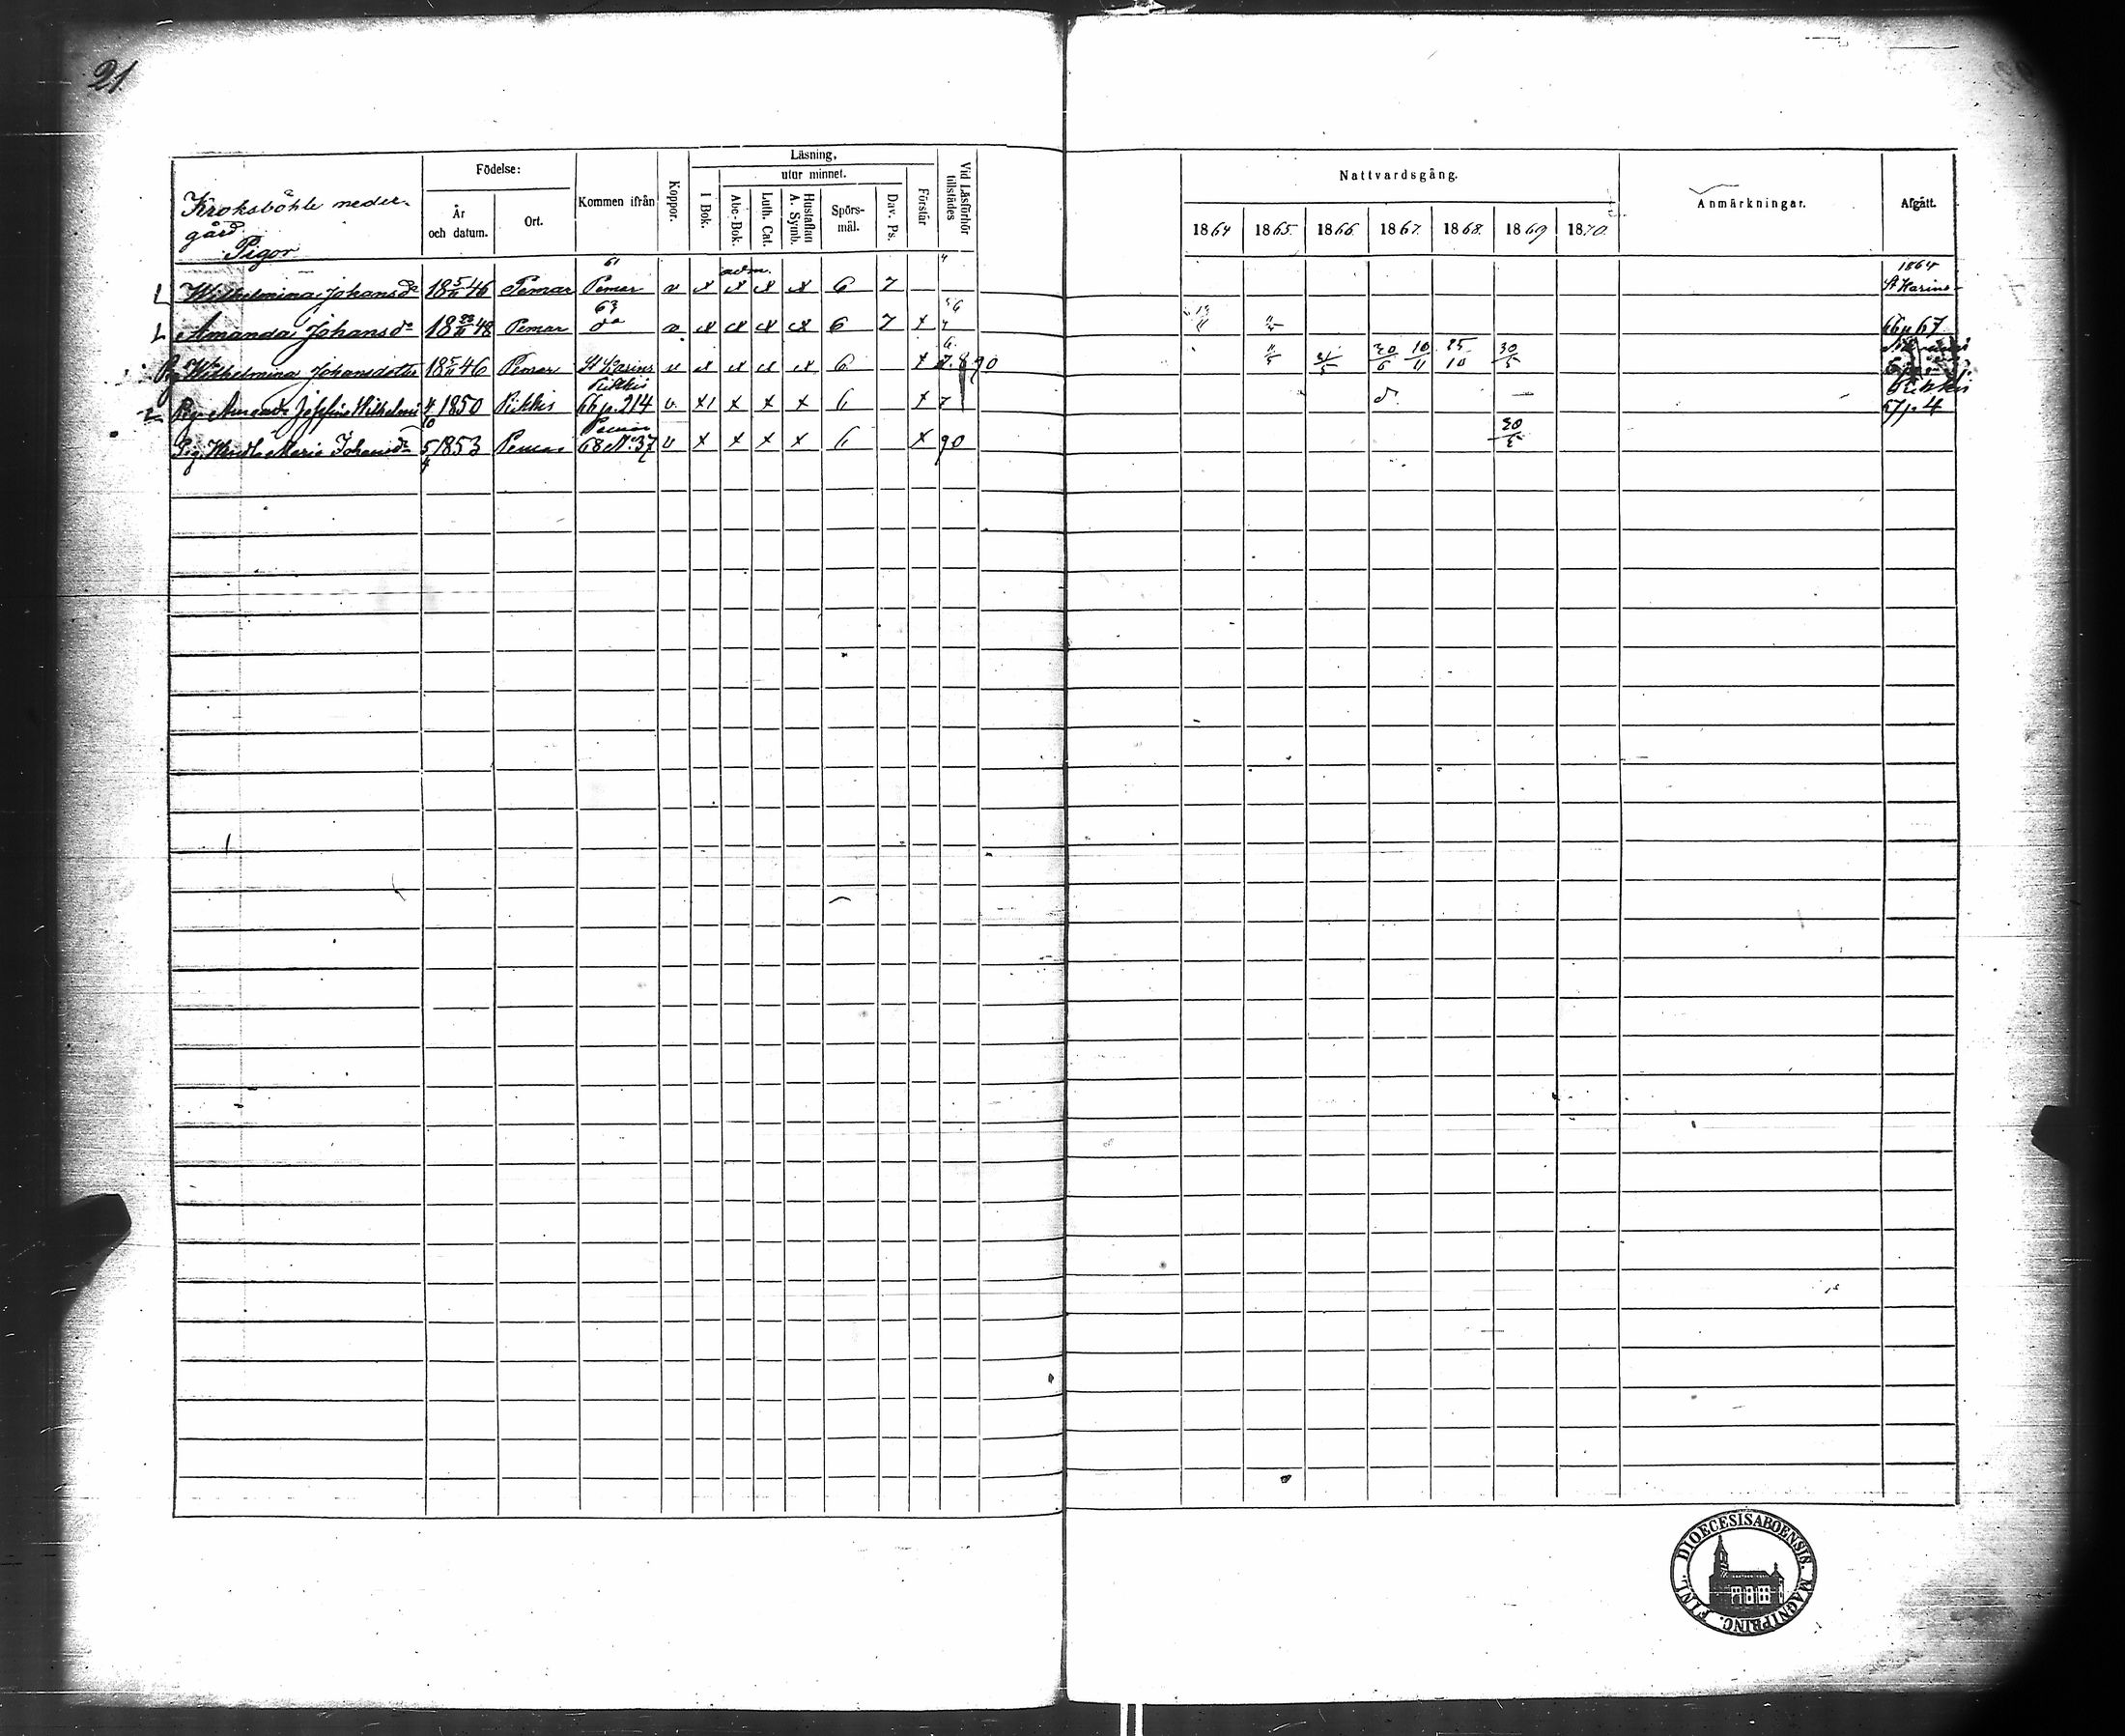 21.
Kroksböhle neder-
gård
Pigor
Födelse:
År
och datum.
Ort.
Kommen ifrån
Koppor.
Läsning,
utur minnet.
I Bok.
Abc-Bok.
Luth. Cat.
Hustaflan
A. Symb.
Spörs-
mål.
Dav. Ps.
Förstår
Vid Läsförhör
tillstädes
Nattvardsgång.
1864 1865. 1866. 1867. 1868. 1869 1870.
Anmärkningar.
Afgått.
61 adm. 4 1864
Wilhelmina Johansdr 18 5/11 46 Pemar Pemar v x x x x 6 7 St Karins
63
Amanda Johansdr 18 23/11 48 Pemar do v x x x x 6 7 x 66 p 67
Pig. Wilhelmina Johansdotter 18 5/11 46 Pemar St Karins v x x x x 6 x 7. 8 90 11/5 21/5 30/6 10/11 25/10 30/5
Pikkis Pikkis
Pig. Amanda Josefina Wilhelmi 4/10 1850 Pikkis 66 p. 214 v. x1 x x x 6 x 7 67 p. 4
Pemar
Pig. Maria Johansdr 5/4 1853 Pemar 68 No 37 v x x x x 6 x 90 30/5
DIOECESIS ABOENSIS. MAGNI PRINC. FINL.